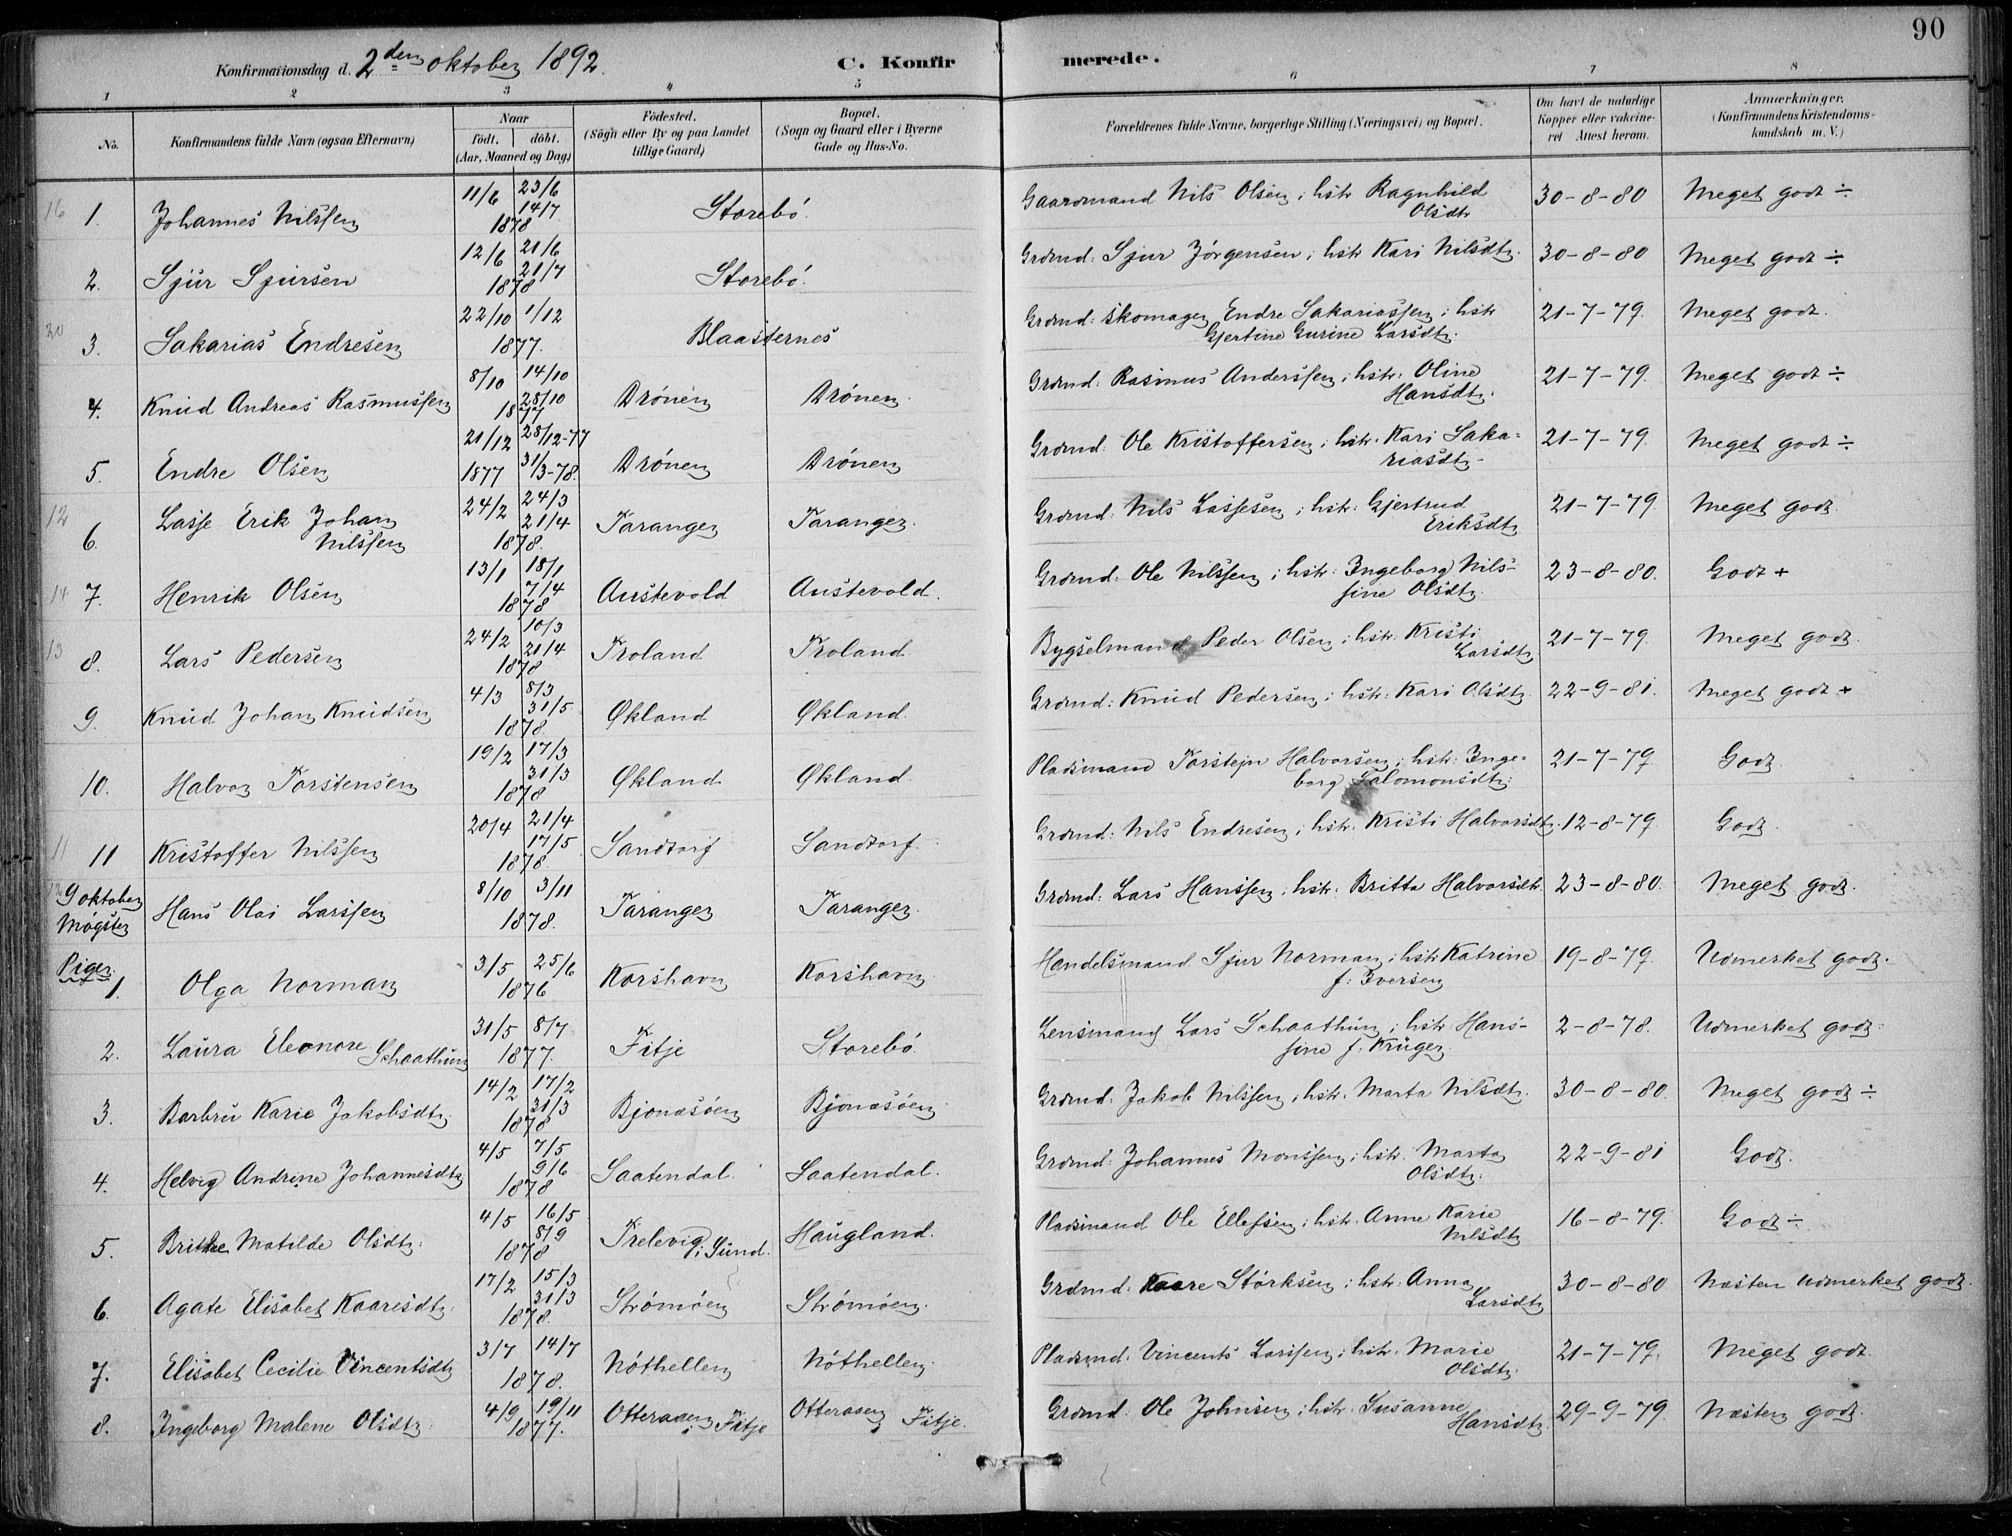 90
Konfirmationsdag d. 2den oktober 1892.
C. Konfirmerede.
1 2 3 4 5 6 7 8
No. Konfirmandens fulde Navn (ogsaa Efternavn) Naar Födt. döbt. (Aar, Maaned og Dag) Födested. (Sogn eller By og paa Landet tillige Gaard) Bopæl. (Sogn og Gaard eller i Byerne Gade og Hus-No. Forældrenes fulde Navne, borgerlige Stilling (Næringsvei) og Bopæl. Om havt de naturlige Kopper eller vakcineret Attest herom. Anmærkninger. (Konfirmandens Kristendomskundskab m. V.)
16 1. Johannes Nilssen 11/6 23/6 14/7 1878 Storebó. Gaardmand Nils Olsen; hstr Ragnhild Olsdtr 30-8-80 Meget godt ÷
2. Sjur Sjursen 12/6 21/6 21/7 1878 Storebó. Grdmd: Sjur Jórgensen; hstr Kari Nilsdtr. 30-8-80 Meget godt ÷
20 3. Sakarias Endresen 22/10 1/12 1877. Blaasternes Grdmd: skomager Endre Sakariassen; hstr Gjertine Gurine Larsdtr. 21-7-79. Meget godt.
4. Knud Andreas Rasmussen 8/10 14/10 28/10 1877 Drónen Drónen. Grdmd: Rasmus Anderssen; hstr: Oline Hansdtr. 21-7-79. Meget godt ÷
5. Endre Olsen 21/12 1877 28/12-77 31/3-78. Drónen Drónen Grdmd. Ole Kristoffersen; hstr. Kari Sakariasdtr. 21-7-79. Meget godt ÷
12 6. Lasse Erik Johan Nilssen 24/2 24/3 21/4 1878. Taranger Taranger. Grdmd: Nils Lassesen; hstr: Gjertrud Eriksdtr 21-7-79. Meget godt.
14 7. Henrik Olsen 13/1 18/1 7/4 1878 Austevold Austevold. Grdmd: Ole Nilssen; hstr: Ingeborg Nilssine Olsdtr. 23-8-80. Godt +
13 8. Lars Pedersen 24/2 10/3 21/4 1878 Troland Troland. Bygselmand Peder Olsen; hstr: Kristi Larsdtr 21-7-79. Meget godt.
9. Knud Johan Knudsen 4/3 8/3 31/5 1878. Økland Økland. Grdmd: Knud Pedersen; hstr: Kari Olsdtr. 22-9-81. Meget godt +
10. Halvor Torstensen 19/2 17/3 31/3 1878 Økland Økland. Pladsmand Torstejn Halvorsen; hstr: Ingeborg Salomonsdtr. 21-7-79. Godt.
11 11 Kristoffer Nilssen 20/4 21/4 17/5 1878. Sandtorf Sandtorf. Grdmd: Nils Endresen; hstr. Kristi Halvorsdtr. 12-8-79. Godt.
9 oktober Møgster Hans Olai Larssen 8/10 3/11 1878. Taranger Taranger. Grdmd: Lars Hanssen, hstr: Britta Halvorsdtr. 23-8-80. Meget godt.
Piger. 1. Olga Norman 3/5 25/6 1876 Korshavn Korshavn. Handelsmand Sjur Norman; hstr Katrine f: Iversen 19-8-79. Udmerket godt.
2. Laura Eleonore Schaathun 31/5 8/7 1877. Fitje Storebó. Lensmand Lars Schaathun; hstr: Hanssine f: Krüger 2-8-78. Udmerket godt.
3. Barbru Karie Jakobsdtr. 14/2 17/2 31/3 1878 Bjonæsóen Bjonæsóen. Grdmd. Jakob Nilssen, hstr. Marta Nilsdtr. 30-8-80. Meget godt ÷
4. Helvig Andrine Johannesdtr 4/5 7/5 9/6 1878 Saatendal. Saatendal. Grdmd: Johannes Monssen; hstr. Marta Olsdtr. 22-9-81 Godt.
5. Brithe Matilde Olsdtr. 4/5 16/5 8/9 1878 Trelevig i Sund. Haugland. Pladsmand Ole Ellefsen; hstr. Anne Karie Nilsdtr 16-8-79. Godt ÷
6. Agate Elisabet Kaaresdtr. 17/2 15/3 31/3 1878. Strómóen Strómóen. Grdmd. Kaare Stórksen; hstr. Anna Larsdtr 30-8-80 Næsten udmerket godt.
7. Elisabet Cecilie Vincentsdtr 3/7 14/7 1878. Nóthellen Nóthellen. Pladsmd. Vincents Larssen; hstr. Marie Olsdtr. 21-7-79. Meget godt.
8. Ingeborg Malene Olsdtr. 4/9 19/11 1877. Otteraaen i Fitje Otteraaen i Fitje. Grdmd: Ole Johnsen; hstr. Susanne Hansdtr 29-9-79. Næsten godt.